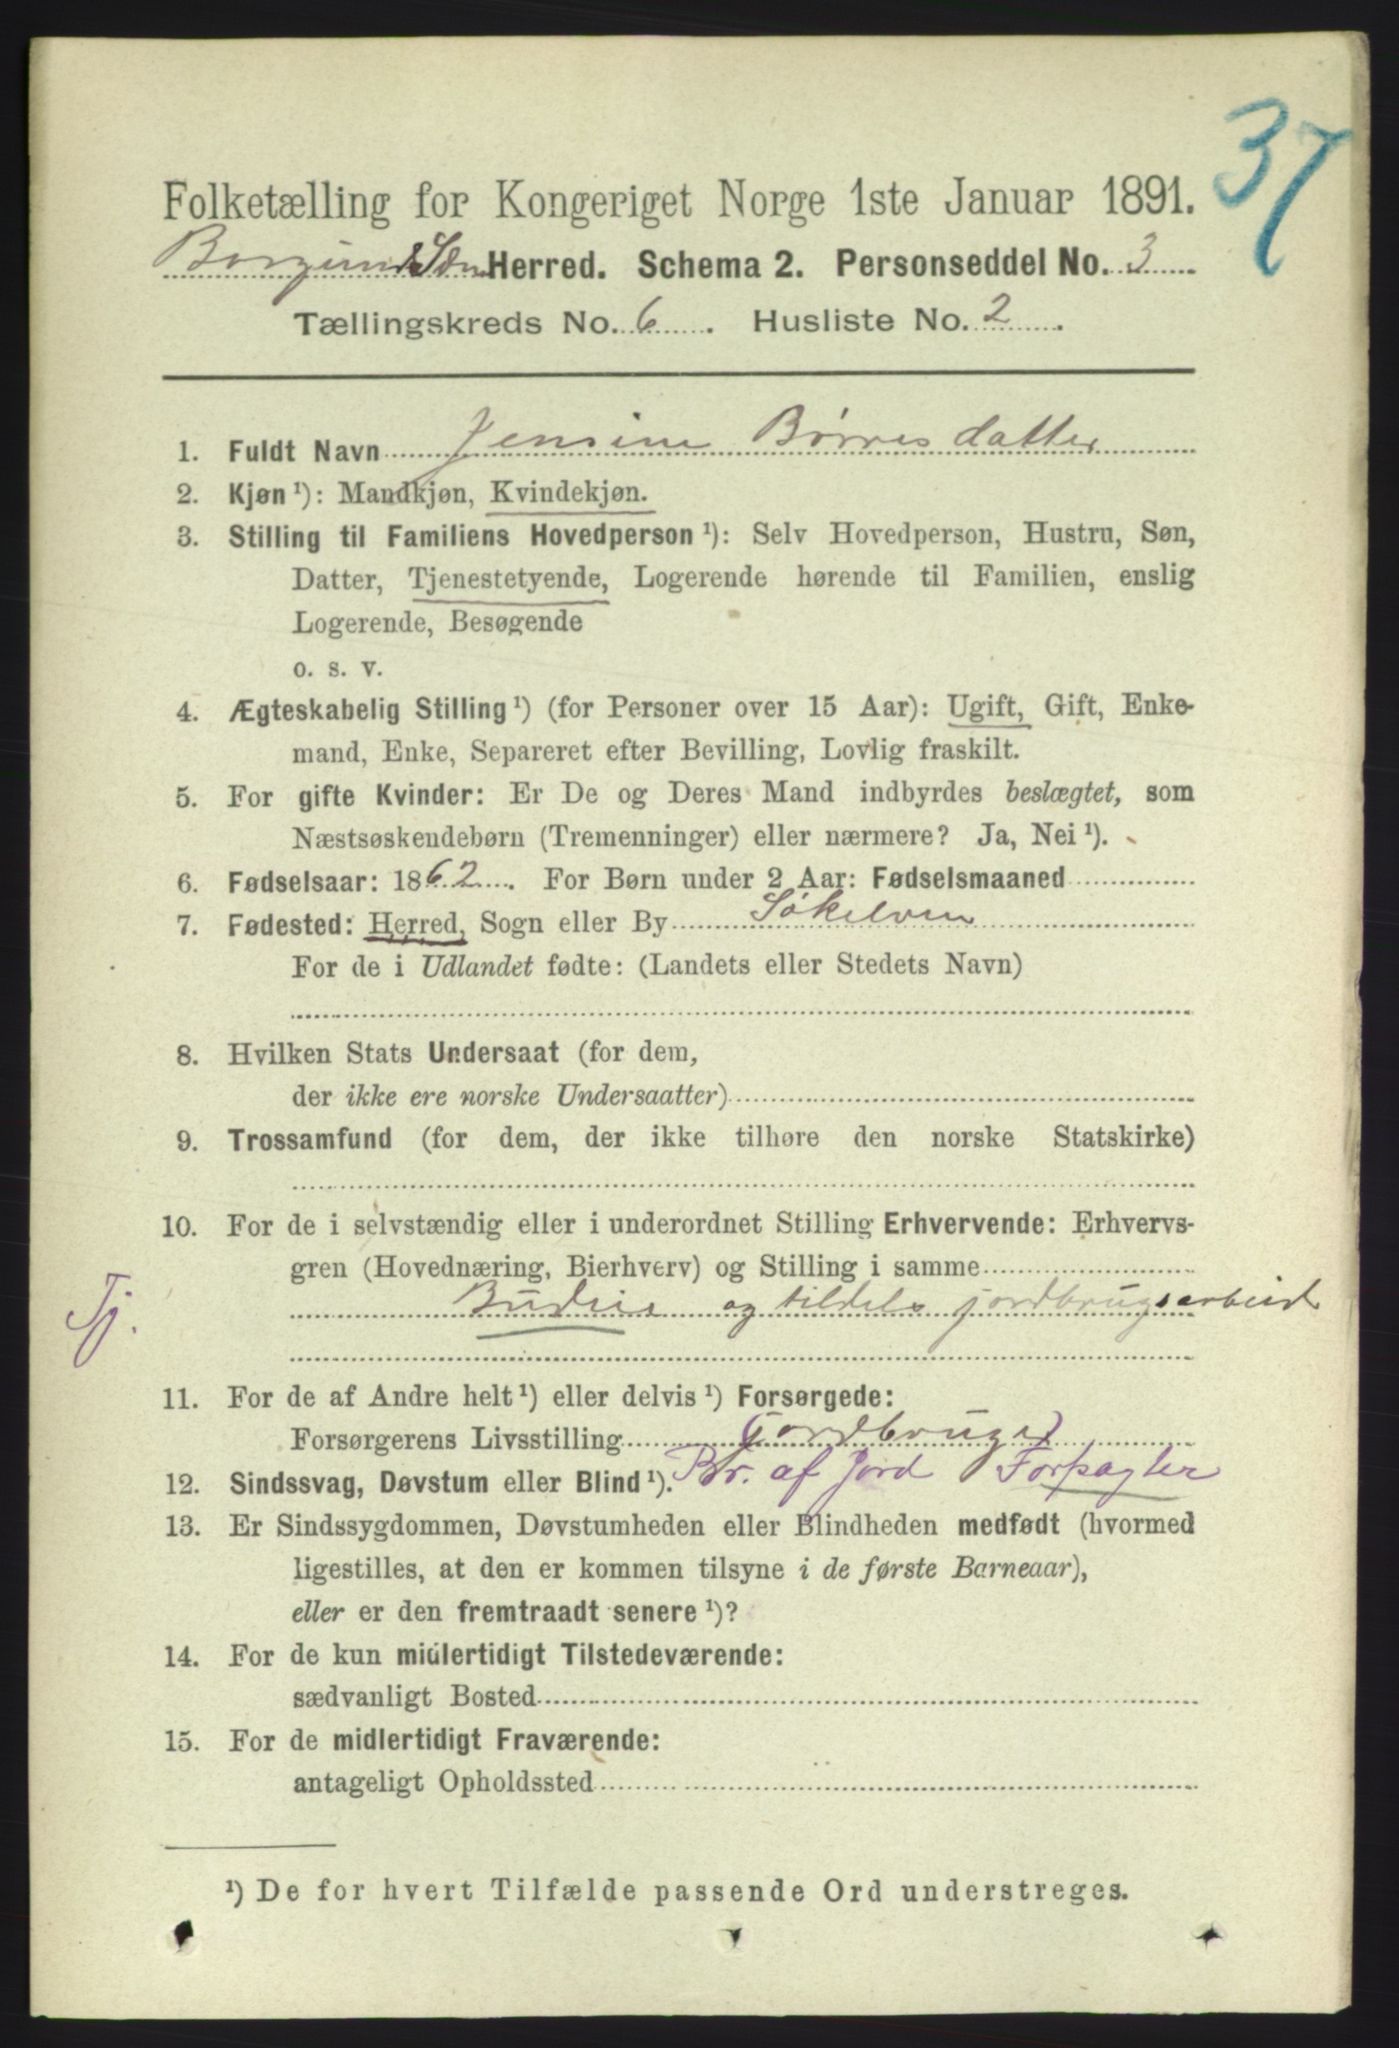 37
Folketælling for Kongeriget Norge 1ste Januar 1891.
Borgund Herred. Schema 2. Personseddel No. 3
Tællingskreds No. 6. Husliste No. 2.
1. Fuldt Navn Jensine Børresdatter
2. Kjøn ¹): Mandkjøn, Kvindekjøn.
3. Stilling til Familiens Hovedperson ¹): Selv Hovedperson, Hustru, Søn,
Datter, Tjenestetyende, Logerende hørende til Familien, enslig
Logerende, Besøgende
o. s. v.
4. Ægteskabelig Stilling ¹) (for Personer over 15 Aar): Ugift, Gift, Enke-
mand, Enke, Separeret efter Bevilling, Lovlig fraskilt.
5. For gifte Kvinder: Er De og Deres Mand indbyrdes beslægtet, som
Næstsøskendebørn (Tremenninger) eller nærmere? Ja, Nei ¹).
6. Fødselsaar: 1862. For Børn under 2 Aar: Fødselsmaaned
7. Fødested: Herred, Sogn eller By Søkelven
For de i Udlandet fødte: (Landets eller Stedets Navn)
8. Hvilken Stats Undersaat (for dem,
der ikke ere norske Undersaatter)
9. Trossamfund (for dem, der ikke tilhøre den norske Statskirke)
10. For de i selvstændig eller i underordnet Stilling Erhvervende: Erhvervs-
gren (Hovednæring, Bierhverv) og Stilling i samme
Tj. Budeie og tildels jordbrugsarbeid
11. For de af Andre helt ¹) eller delvis ¹) Forsørgede:
Forsørgerens Livsstilling (jordbruger)
Br. af Jord Forpagter
12. Sindssvag, Døvstum eller Blind ¹).
13. Er Sindssygdommen, Døvstumheden eller Blindheden medfødt (hvormed
ligestilles, at den er kommen tilsyne i de første Barneaar),
eller er den fremtraadt senere ¹)?
14. For de kun midlertidigt Tilstedeværende:
sædvanligt Bosted
15. For de midlertidigt Fraværende:
antageligt Opholdssted
¹) De for hvert Tilfælde passende Ord understreges.